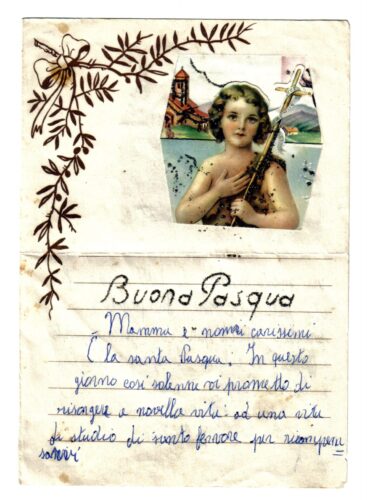 Buona Pasqua
Mamma e nonni carissimi
È la santa Pasqua. In questo
giorno così solenne vi prometto di
risorgere a novella vita: ad una vita
di studio di santo fervore per ricompen=
sarvi